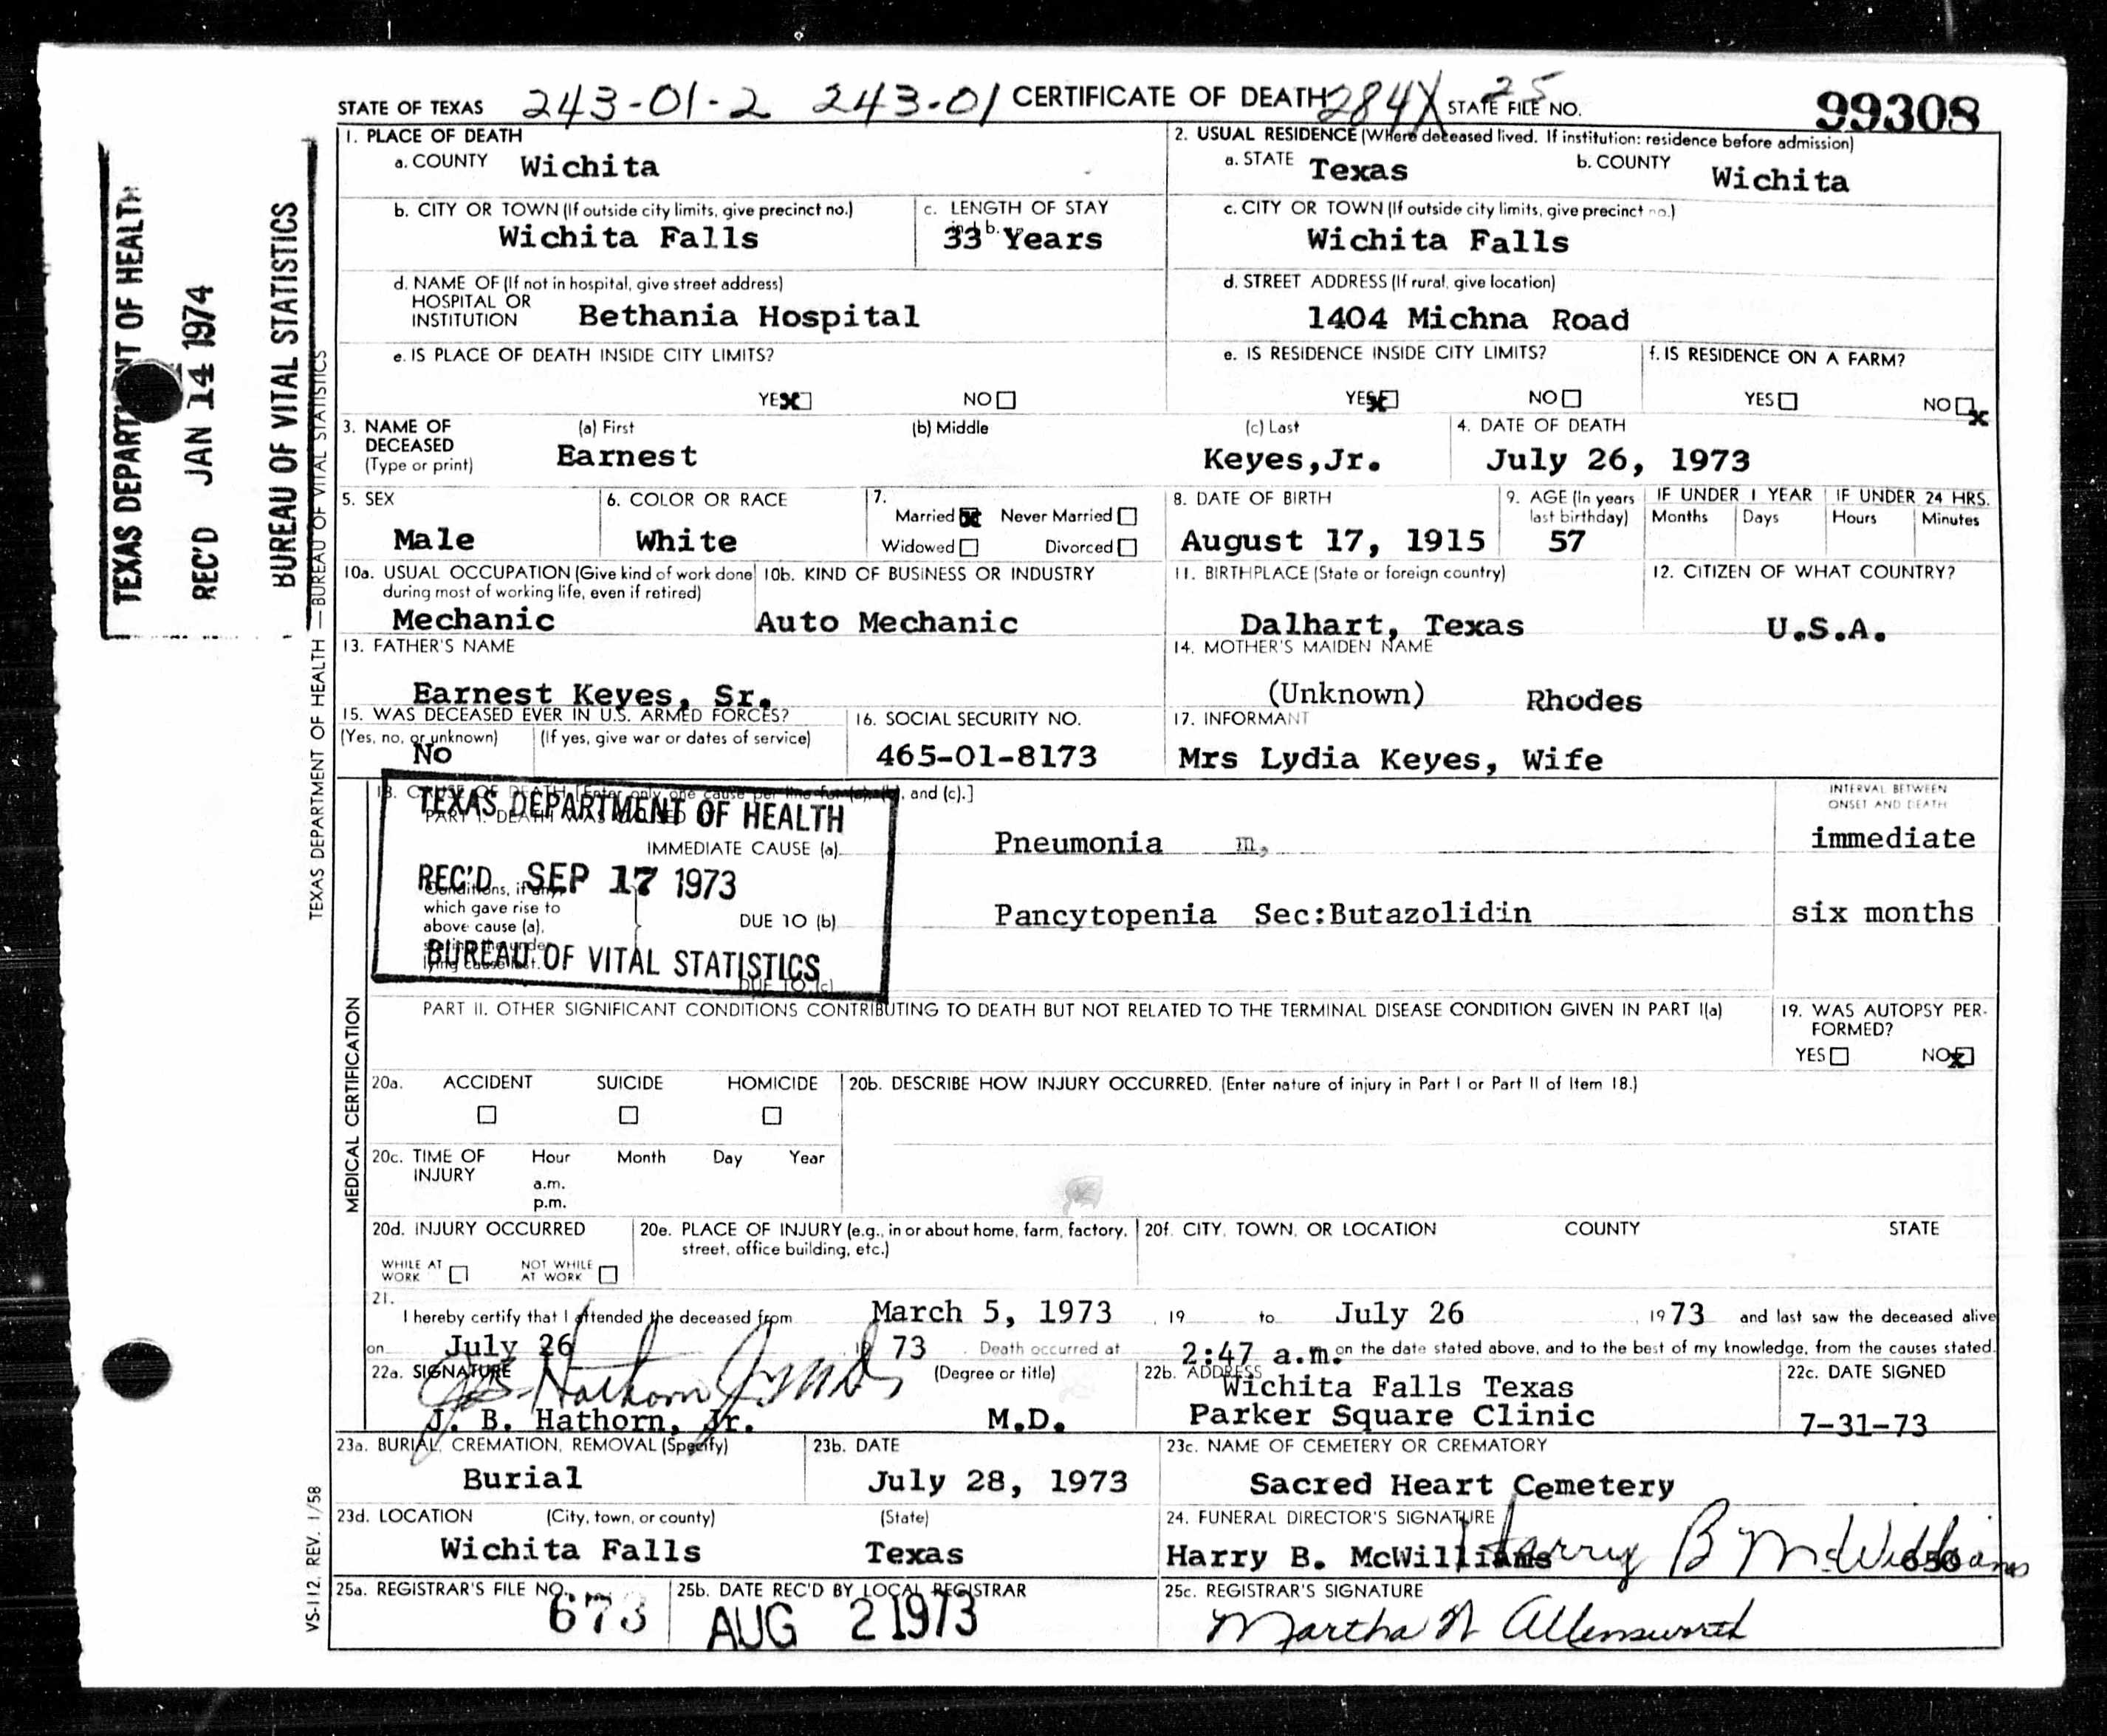 STATE OF TEXAS 243-01-2 243-01 CERTIFICATE OF DEATH 284X 25 STATE FILE NO. 99308
1. PLACE OF DEATH
a. COUNTY Wichita
2. USUAL RESIDENCE (Where deceased lived. If institution: residence before admission)
a. STATE Texas b. COUNTY Wichita
b. CITY OR TOWN (If outside city limits, give precinct no.)
Wichita Falls
c. LENGTH OF STAY
33 Years
c. CITY OR TOWN (If outside city limits, give precinct no.)
Wichita Falls
d. NAME OF (If not in hospital, give street address)
HOSPITAL OR
INSTITUTION Bethania Hospital
d. STREET ADDRESS (If rural, give location)
1404 Michna Road
e. IS PLACE OF DEATH INSIDE CITY LIMITS?
YES NO
e. IS RESIDENCE INSIDE CITY LIMITS?
YES NO
f. IS RESIDENCE ON A FARM?
YES NO
3. NAME OF
DECEASED
(Type or print)
(a) First (b) Middle (c) Last
Earnest Keyes,Jr.
4. DATE OF DEATH
July 26, 1973
5. SEX
Male
6. COLOR OR RACE
White
7.
Married Never Married
Widowed Divorced
8. DATE OF BIRTH
August 17, 1915
9. AGE (In years
last birthday)
57
IF UNDER 1 YEAR IF UNDER 24 HRS.
Months Days Hours Minutes
10a. USUAL OCCUPATION (Give kind of work done
during most of working life, even if retired)
Mechanic
10b. KIND OF BUSINESS OR INDUSTRY
Auto Mechanic
11. BIRTHPLACE (State or foreign country)
Dalhart, Texas
12. CITIZEN OF WHAT COUNTRY?
U.S.A.
13. FATHER'S NAME
Earnest Keyes, Sr.
14. MOTHER'S MAIDEN NAME
(Unknown) Rhodes
15. WAS DECEASED EVER IN U.S. ARMED FORCES?
(Yes, no, or unknown) (If yes, give war or dates of service)
No
16. SOCIAL SECURITY NO.
465-01-8173
17. INFORMANT
Mrs Lydia Keyes, Wife
18. CAUSE OF DEATH [Enter only one cause per line for (a), (b), and (c).]
PART I. DEATH WAS
IMMEDIATE CAUSE (a) Pneumonia m,
INTERVAL BETWEEN
ONSET AND DEATH
immediate
Conditions, if any,
which gave rise to
above cause (a),
stating the under-
lying cause last.
DUE TO (b) Pancytopenia Sec:Butazolidin six months
DUE TO (c)
TEXAS DEPARTMENT OF HEALTH
REC'D SEP 17 1973
BUREAU OF VITAL STATISTICS
PART II. OTHER SIGNIFICANT CONDITIONS CONTRIBUTING TO DEATH BUT NOT RELATED TO THE TERMINAL DISEASE CONDITION GIVEN IN PART I(a)
19. WAS AUTOPSY PER-
FORMED?
YES NO
20a. ACCIDENT SUICIDE HOMICIDE
20b. DESCRIBE HOW INJURY OCCURRED. (Enter nature of injury in Part I or Part II of Item 18.)
20c. TIME OF
INJURY
Hour Month Day Year
a.m.
p.m.
20d. INJURY OCCURRED
WHILE AT
WORK
NOT WHILE
AT WORK
20e. PLACE OF INJURY (e.g., in or about home, farm, factory,
street, office building, etc.)
20f. CITY, TOWN, OR LOCATION COUNTY STATE
21.
I hereby certify that I attended the deceased from March 5, 1973, 19 to July 26 1973 and last saw the deceased alive
on July 26 19 73 Death occurred at 2:47 a.m. on the date stated above, and to the best of my knowledge, from the causes stated.
22a. SIGNATURE (Degree or title)
J B Hathorn Jr MD
J. B. Hathorn, Jr. M.D.
22b. ADDRESS
Wichita Falls Texas
Parker Square Clinic
22c. DATE SIGNED
7-31-73
23a. BURIAL, CREMATION, REMOVAL (Specify)
Burial
23b. DATE
July 28, 1973
23c. NAME OF CEMETERY OR CREMATORY
Sacred Heart Cemetery
23d. LOCATION (City, town, or county) (State)
Wichita Falls Texas
24. FUNERAL DIRECTOR'S SIGNATURE
Harry B. McWilliams Harry B McWilliams 650
25a. REGISTRAR'S FILE NO.
673
25b. DATE REC'D BY LOCAL REGISTRAR
AUG 2 1973
25c. REGISTRAR'S SIGNATURE
Martha N Allensworth
TEXAS DEPARTMENT OF HEALTH
REC'D JAN 14 1974
BUREAU OF VITAL STATISTICS
TEXAS DEPARTMENT OF HEALTH — BUREAU OF VITAL STATISTICS
MEDICAL CERTIFICATION
VS-112, REV. 1/58